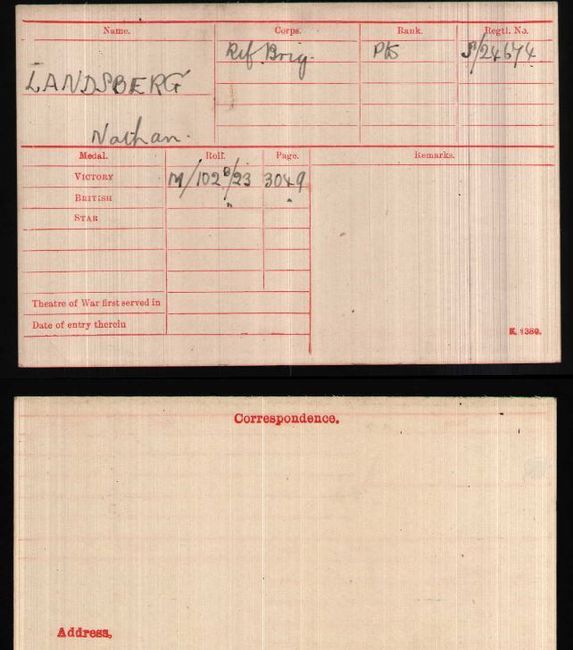 Name. Corps. Rank. Regtl. No.
Rif. Brig. Pte S/24674
LANDSBERG
Nathan.
Medal. Roll. Page. Remarks.
VICTORY M/102B/23 3049
BRITISH " "
STAR
Theatre of War first served in
Date of entry therein
K. 1380.
Correspondence.
Address.